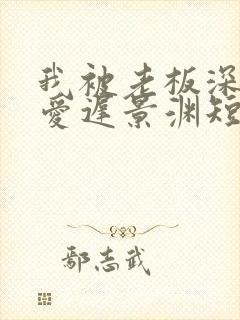 我被老板深
爱遲景渊短
鄢志武